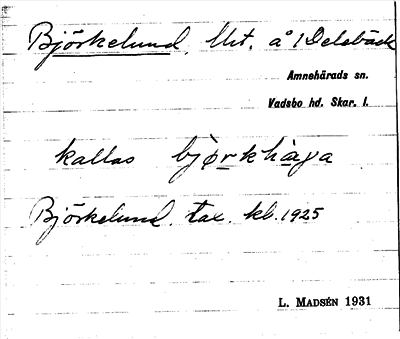 Björkelund, lht. å 1 Delebäck
Amnehärads sn.
Vadsbo hd. Skar. l.
kallas bjørkhaga
Björkelund. tax. kl. 1925
L. MADSÉN 1931